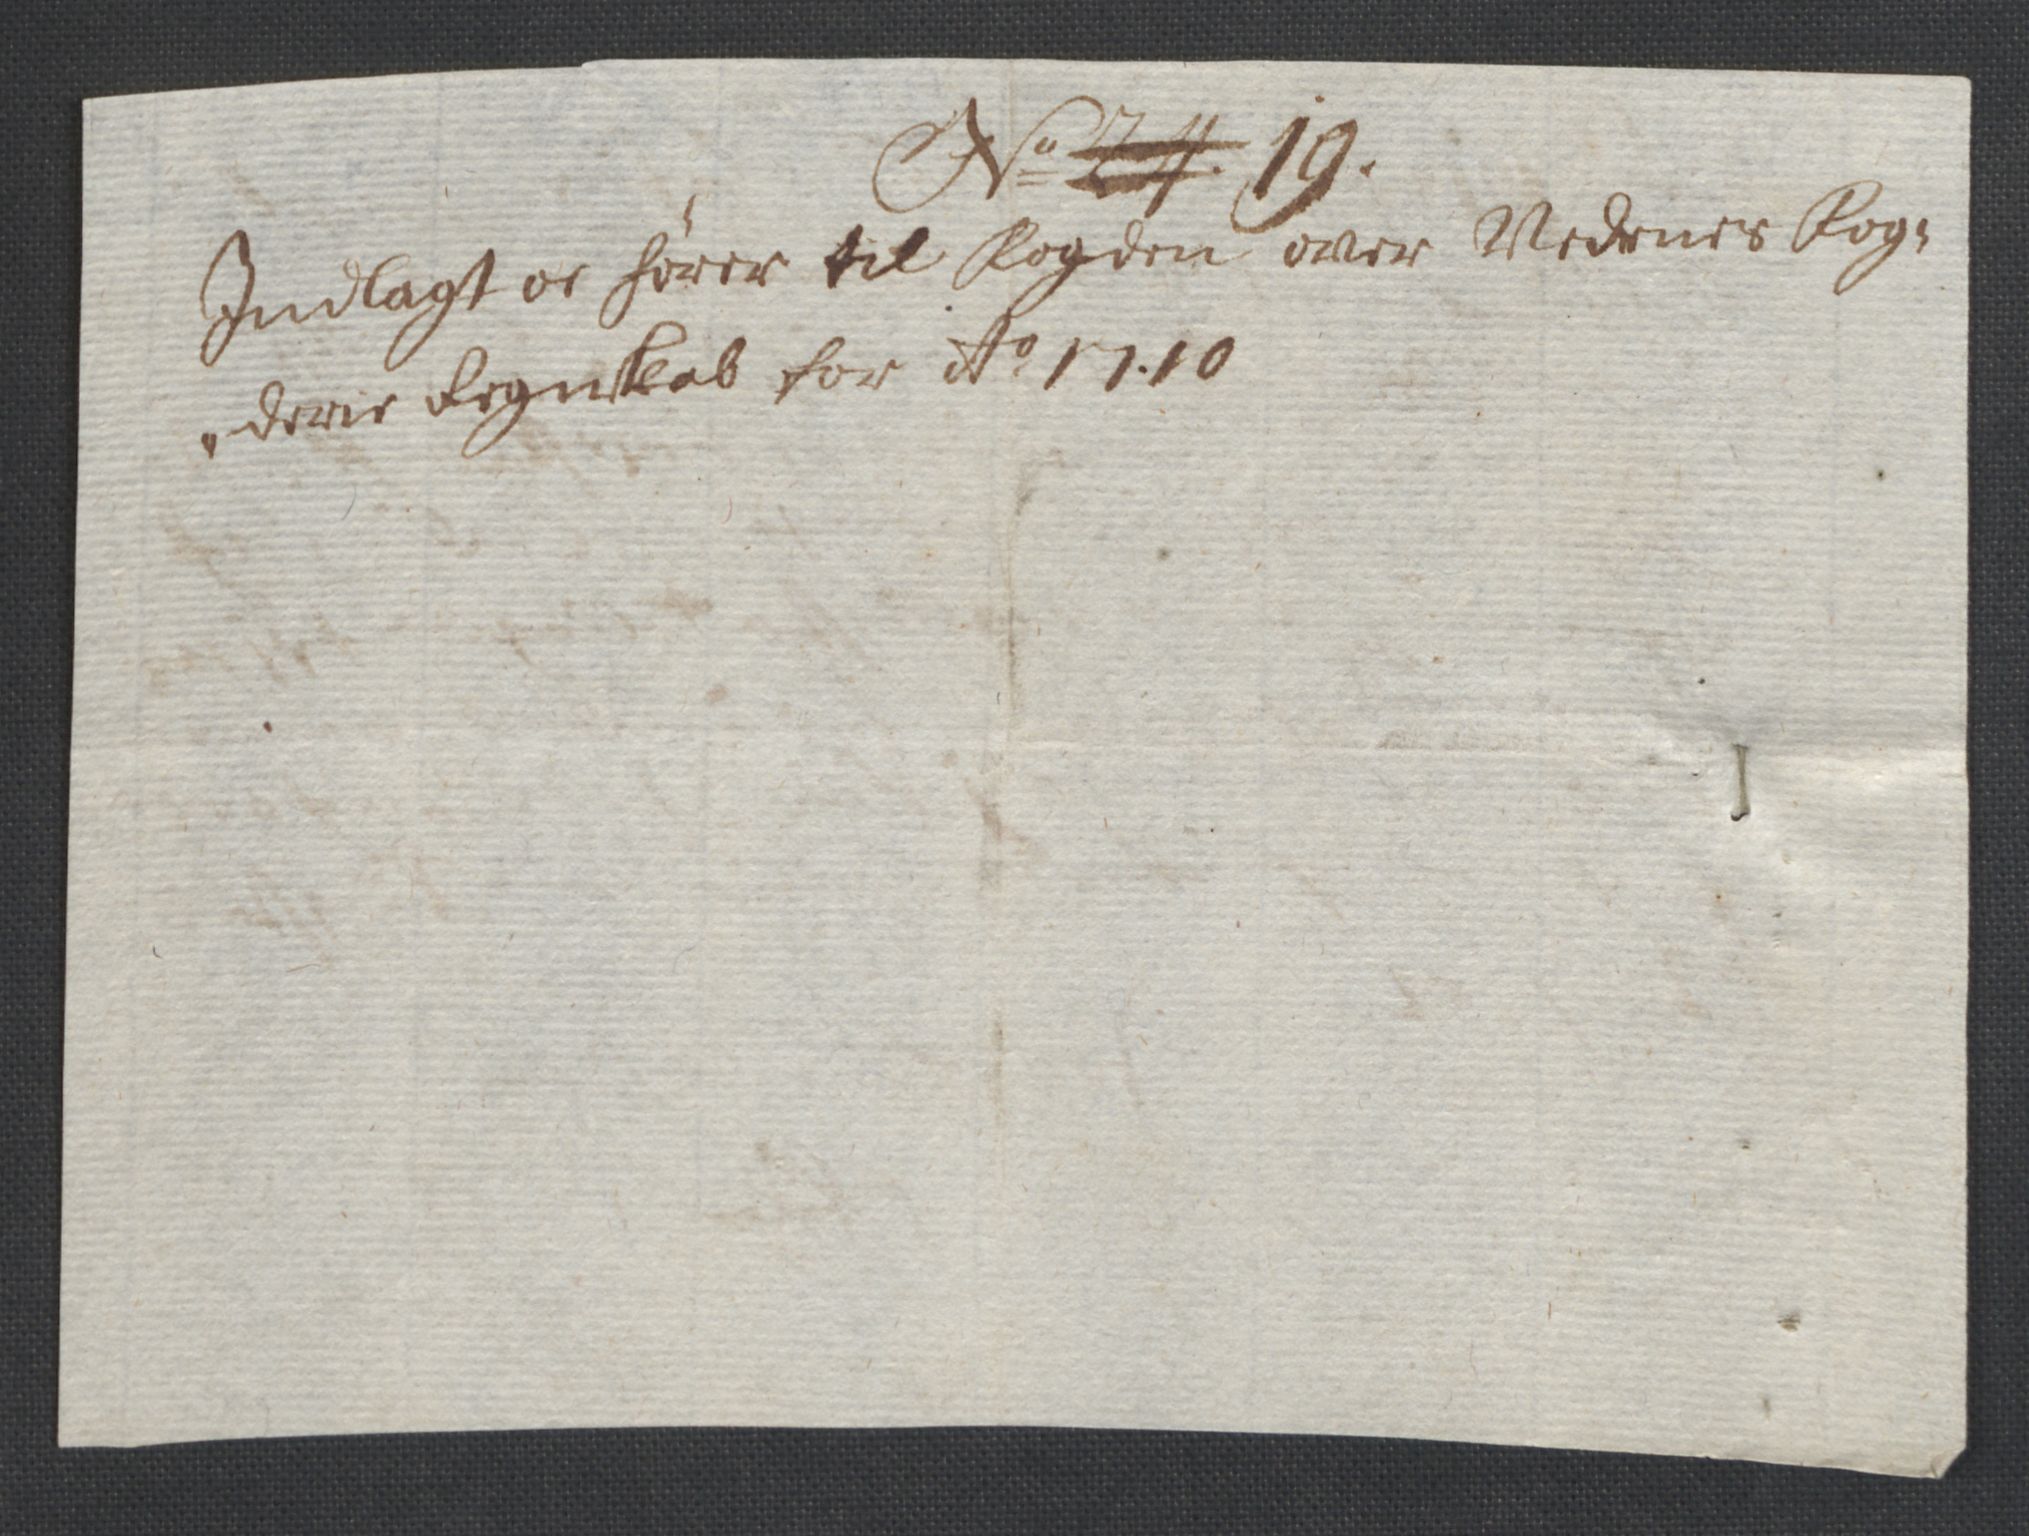 No 24. 19.
Indlagt oc hører til Fogden over Nedenes Fog=
derie Regnskab for Ao 1710